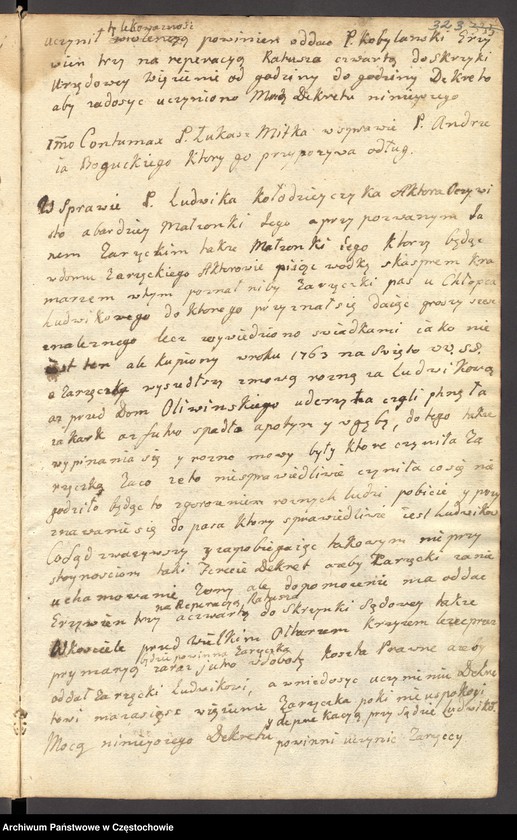 323
uczynił powinien oddac P. Kobylanski Grzy
wien trzy na reperacyą Ratusza czwartą do skrzyki
Urzędowey Więzienie od godziny do godziny Dekreto
aby zadosyc uczyniono Mocą Dekretu ninieyszego
Imo Contumax P. Łukasz Mitka w sprawie P. Andrze
ia Boguckiego ktory go przypozywa o dług.
W Sprawie P. Ludwika Kołodzieyczyka Aktora Oczywi
sto a bardziey Małzonki Jego a przypozwanym Ja
nem Zaręckim takze Małzonki iego ktory będąc
w domu Zaręckiego Aktorowie pijąc wodkę z Kasprem Kra
marzem w tym poznał niby Zaręcki pas u Chłopca
Ludwikowego do ktorego przyznał się daiąc groszy
znaleznego lecz wywiedziono swiadkami iako nie
iest ten ale kupiony w roku 1763 na Swięto SS.
a Zaręczka wyszedłszy zmową rozną za Ludwikową
az przed Dom Oliwinskiego uderzyła czyli phnęła
za kark az futro spadło a potym y w gębę, do tego takze
wypinania się y rozne mowy były ktore czyniła Za
ręczka Zaco ze to niesprawiedliwie czyniła co się nie
godziło będąc to zgorszeniem roznych ludzi pobicie y przy
znawanie się do pasa ktory sprawiedliwie iest Ludwikow
Co Sąd zwazywszy y zapobiegaiąc takowym nieprzy
stoynosciom taki ferecie Dekret azeby Zaręcki za nie
uchamowanie Zony ale dopomozenie ma oddac
Grzywien trzy na Reperacyą Ratusza a czwartą do Skrzynki Sądowey takze
W kosciele przed wielkim Ołtarzem krzyzem lezec przez
prymaryą będzie powinna Zaręczka zaraz jutro w Sobotę koszta Prawne azeby
oddał Zaręcki Ludwikowi, a w niedosyc uczynieniu Dekre
towi ma zasięsc więzienie Zaręczka poki nie uspokoi
y deprekacyą przy Sądzie Ludwiko.
Mocą ninieyszego Dekretu powinni uczynic Zaręccy
Archiwum Państwowe w Częstochowie